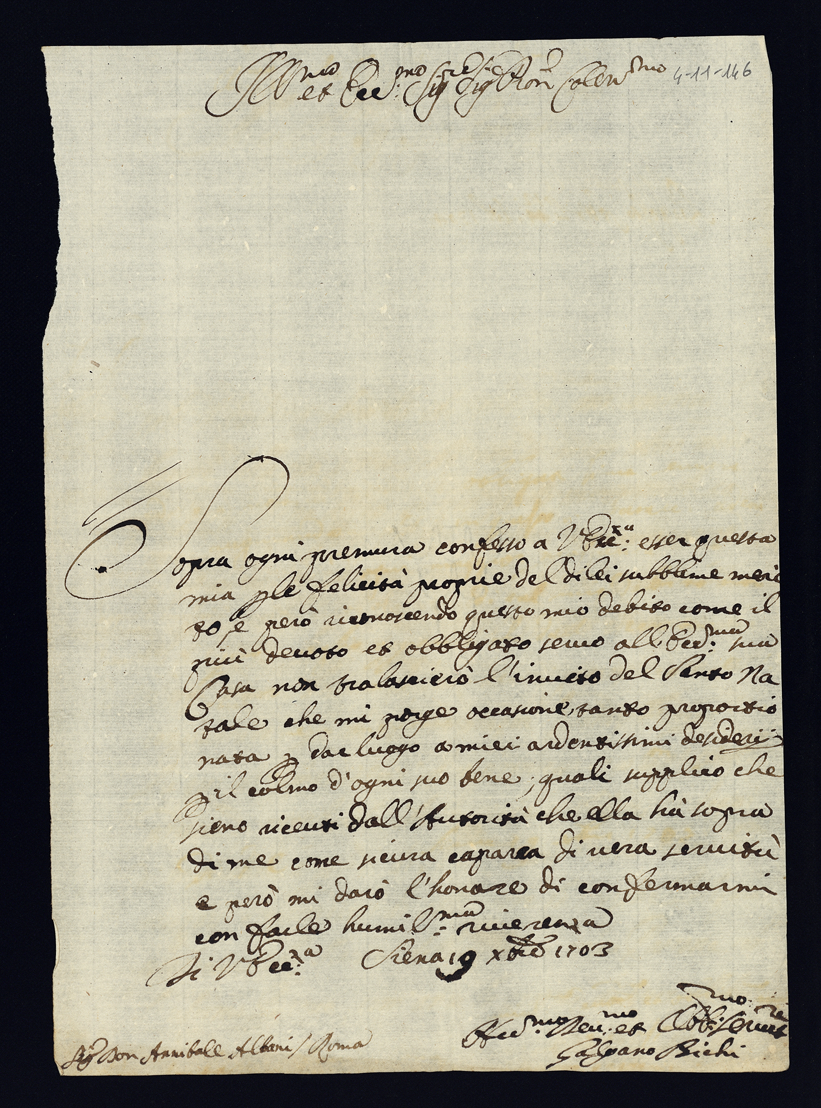 Ill.mo et Ecc.mo Sig.re Sig.re P.ron Colen.mo 4-11-146
Sopra ogni premura confesso a V. Ecc.a esser questa
mia p le felicità proprie del di lei subblime meri
to, e però riconoscendo questo mio debito come il
più devoto et obbligato servo all'Ecc.ma sua
Casa non tralascierò l'invito del Santo Na
tale che mi porge occasione tanto proportio
nata p dar luogo a miei ardentissimi desiderii
p il colmo d'ogni suo bene, quali supplico che
sieno riceuti dall'Autorità che ella hà sopra
di me come sicura caparra di vera servitù
e però mi darò l'honore di confermarmi
con farle humil.ma riverenza
Di V. Ecc.a Siena 19 Xbre 1703
Sig.r Don Annibale Albani / Roma
Hu.mo Dev.mo et Obb.mo Serv.re
Galgano Bichi